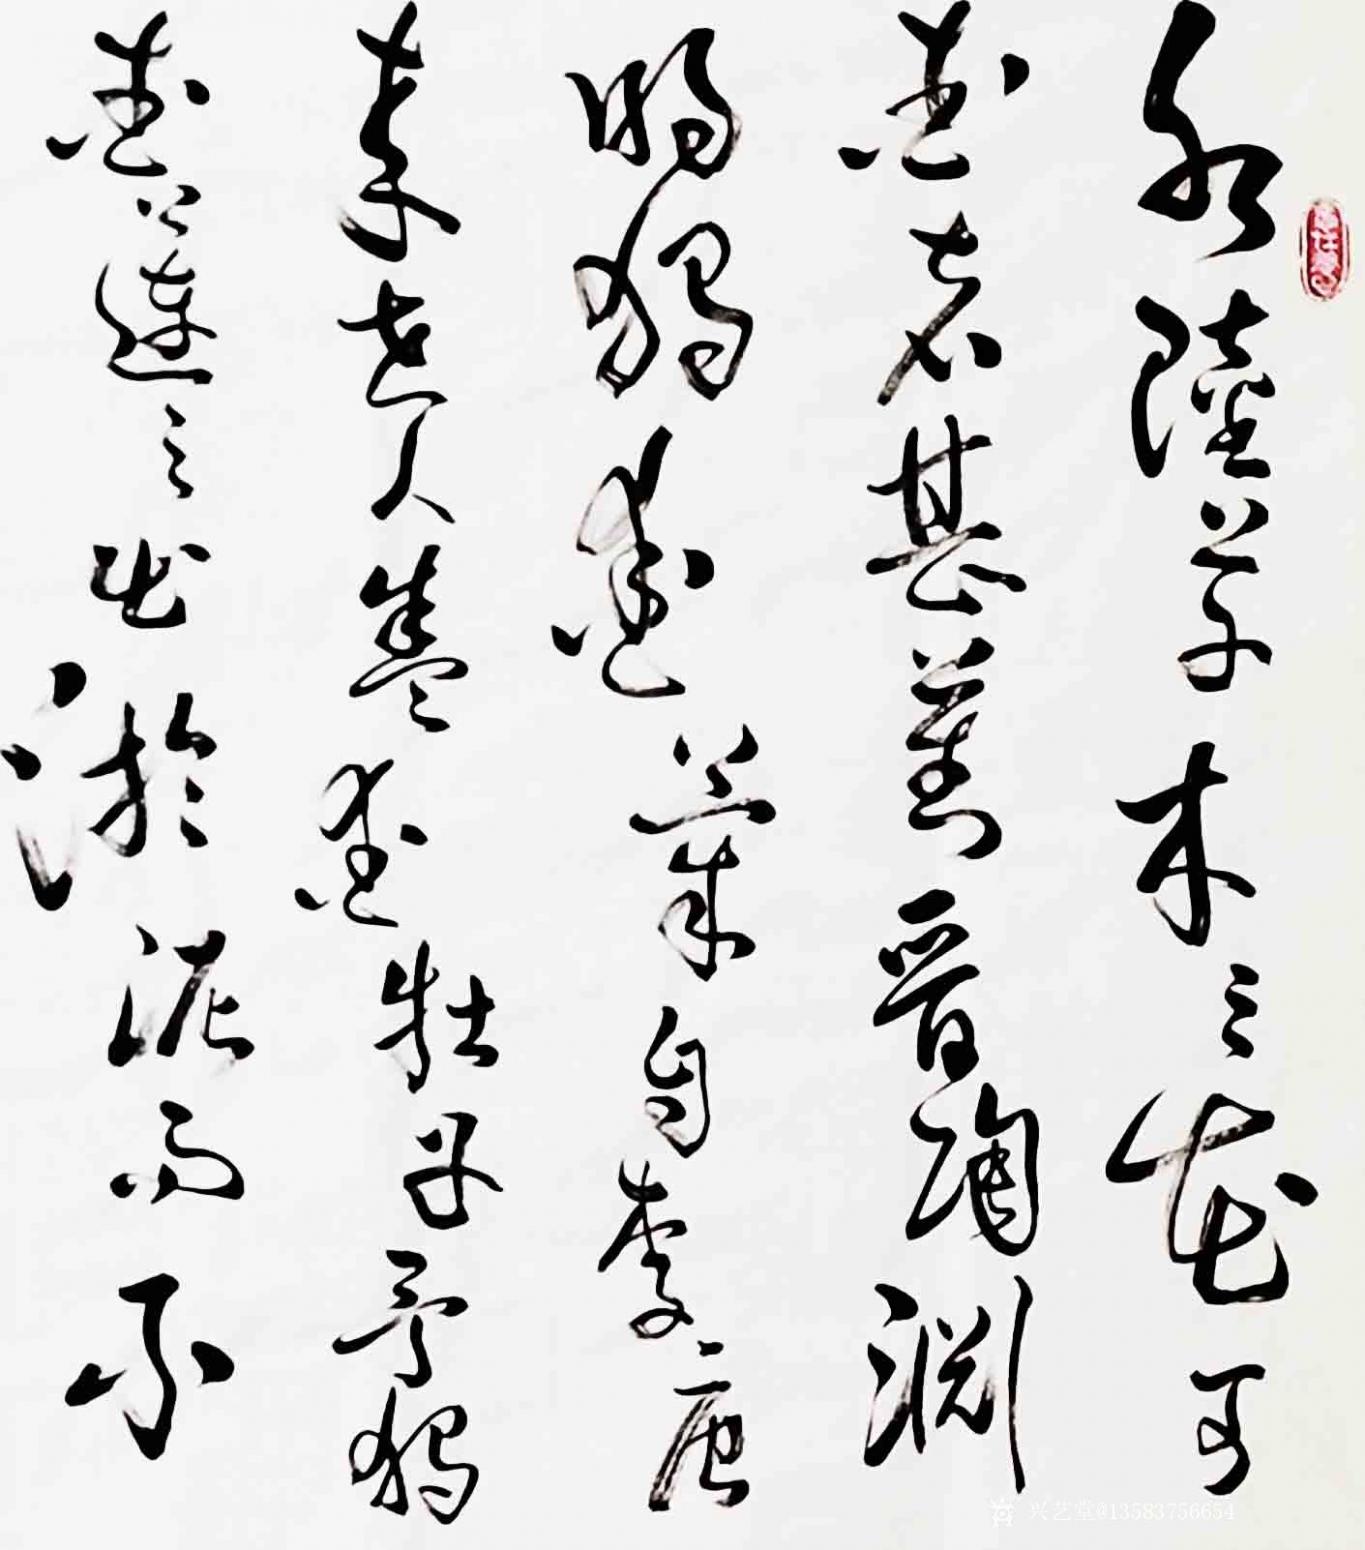 水陸草木之花可
愛者甚蕃晋陶淵
明獨愛菊自李唐
来世人盛愛牡丹予獨
愛蓮之出淤泥而不
兴艺堂@13583756654